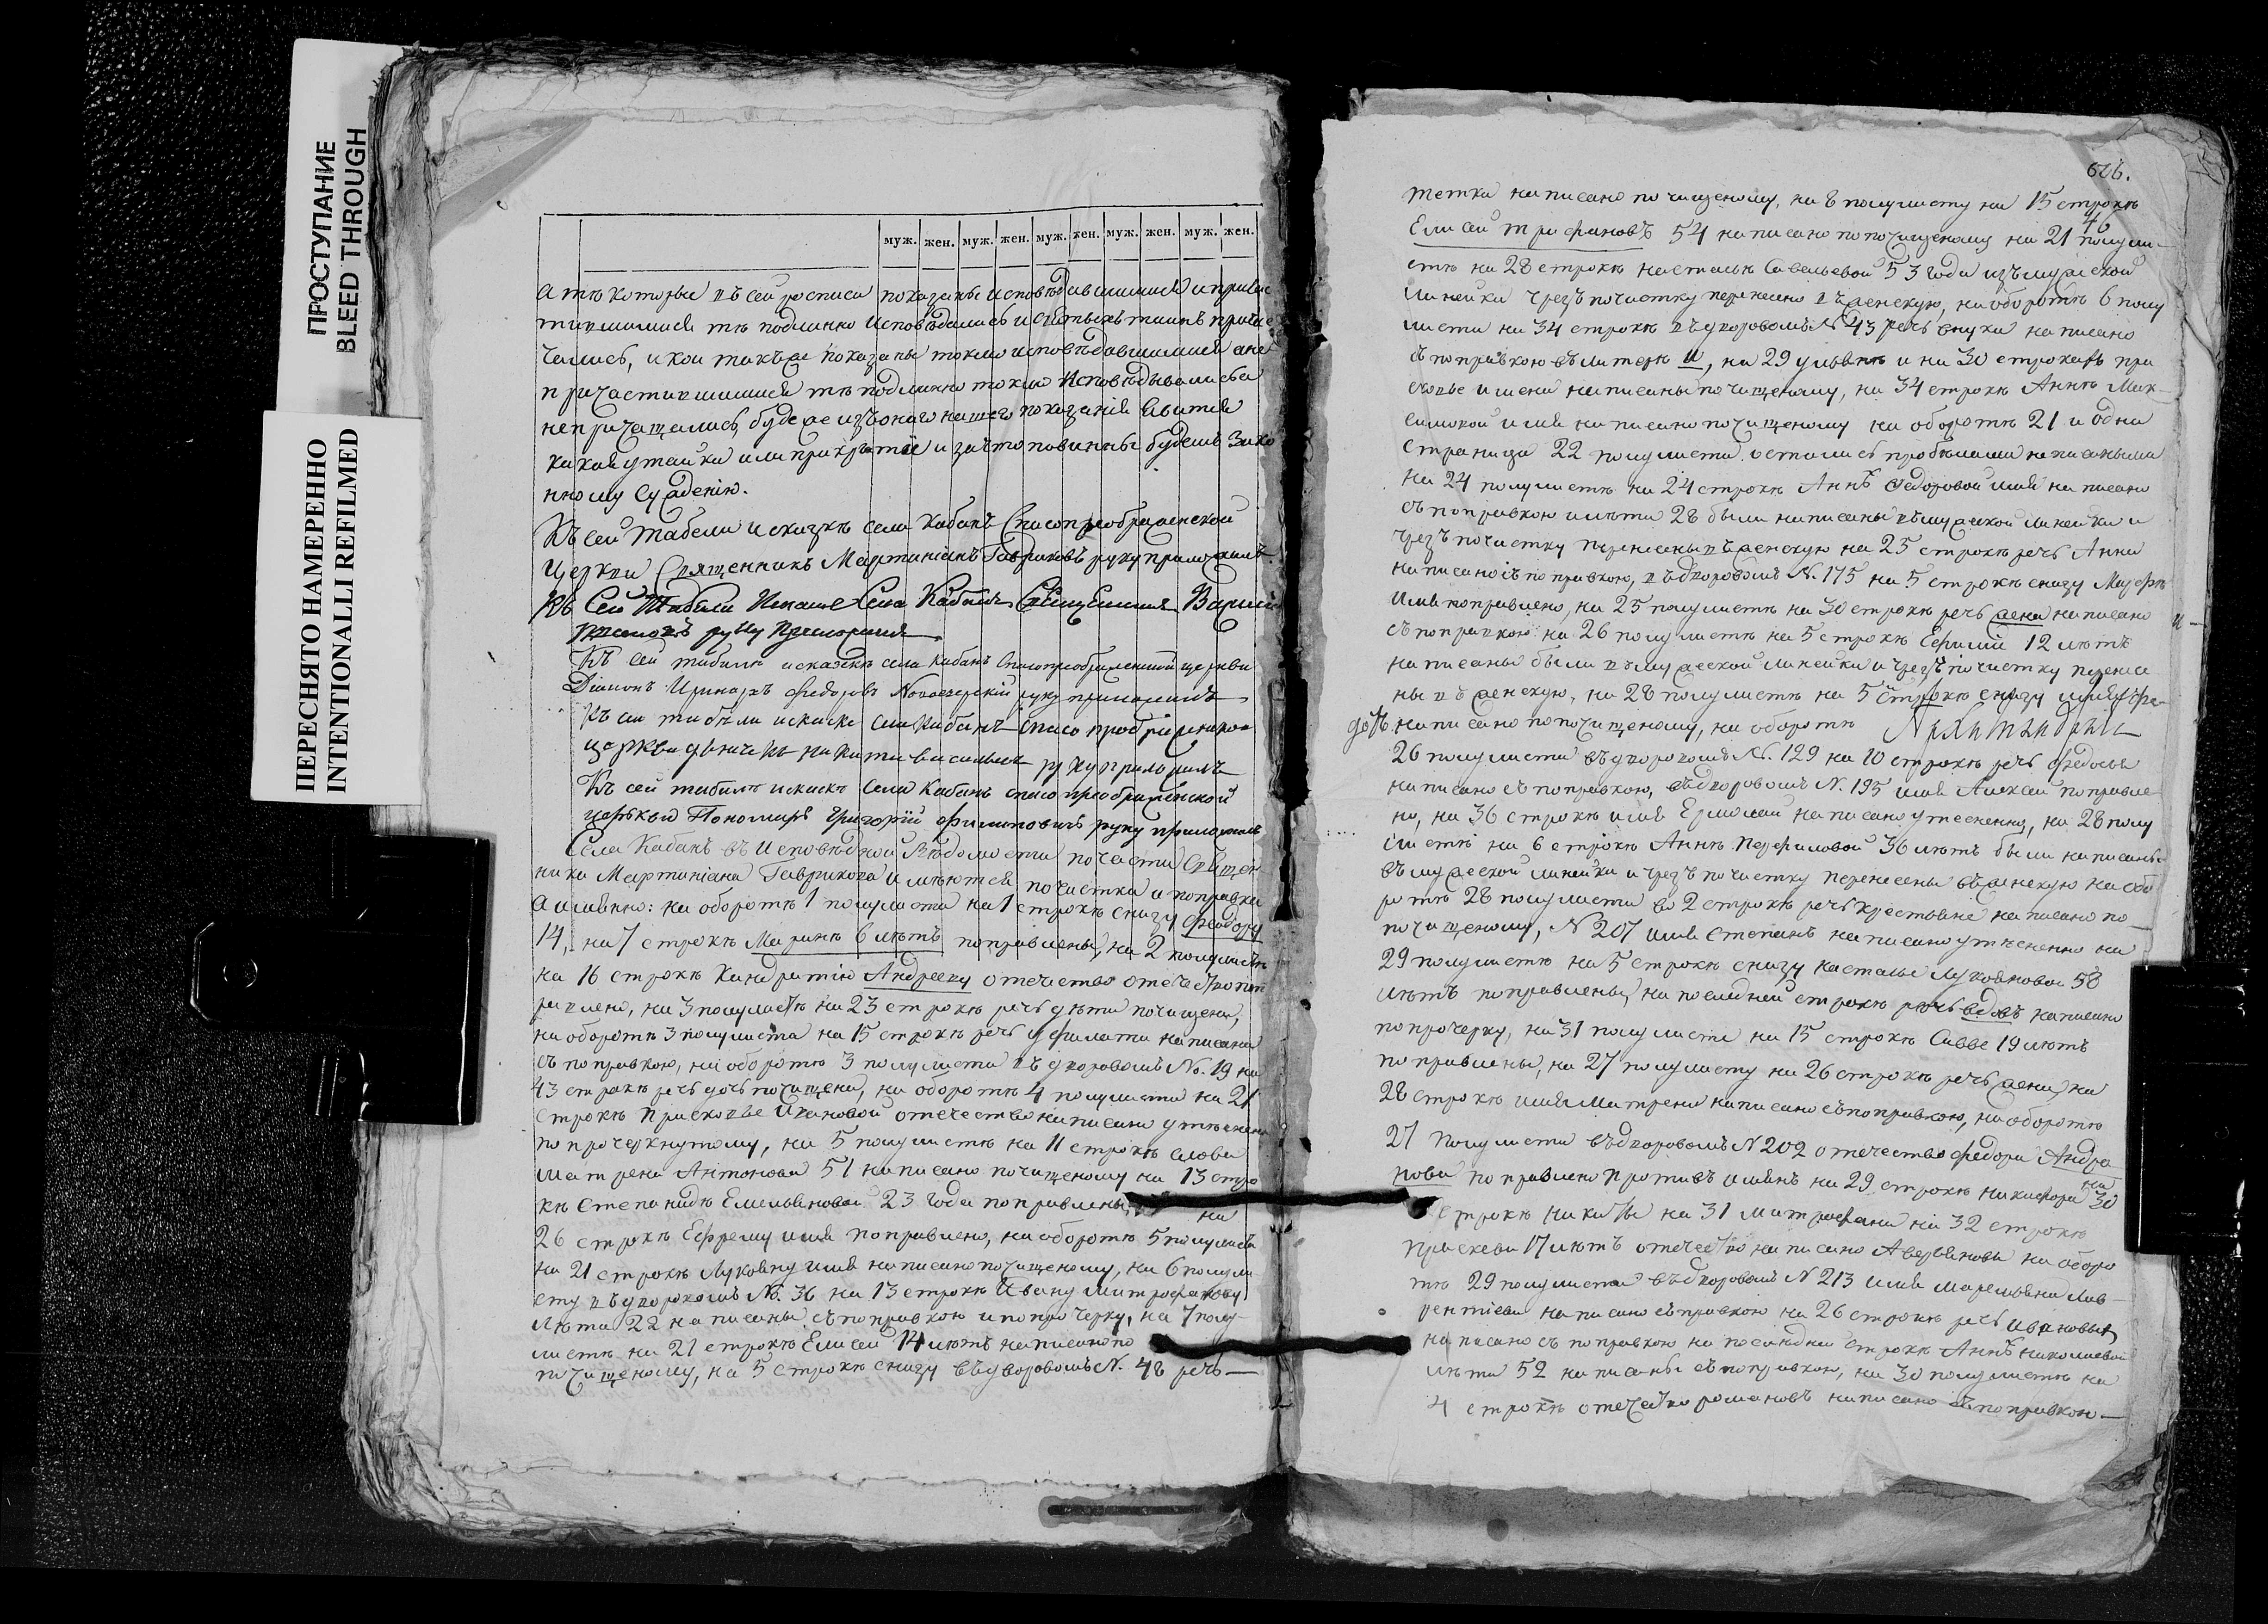 ПРОСТУПАНИЕ
BLEED THROUGH
ПЕРЕСНЯТО НАМЕРЕННО
INTENTIONALLI REFILMED
муж. жен. муж. жен. муж. жен. муж. жен. муж. жен.
а тѣ которые въ сей росписи показаны исповѣдавшимися и прича
тившимися тѣ подлинно исповѣдались и святыхъ таинъ прича
чались, и кои также показаны токмо исповѣдавшимися а не
причастившимися тѣ подлинно токмо исповѣдывались а
непричащались, будеже изъ онаго нашего показанія явится
какая утайка или прикрытіе и за что повинны будемъ зако
нному сужденію.
Къ сей табели и сказкѣ села Кабанъ Спасопреображенской
церкви Священникъ Мартиніанъ Гавриковъ руку приложилъ
Къ сей табели села Кабанъ
руку
Къ сей табели и сказкѣ села Кабанъ Спасопреображенской церкви
Діаконъ Иринархъ Федоровъ руку приложилъ
Къ сей табели и сказке села Кабанъ Спасо преображенской
церкви дьячекъ Никита Васильевъ руку приложилъ
Къ сей табели и сказки села Кабанъ спасо преображенской
церькви Пономарь Григорій Филиповичъ руку приложилъ
Села Кабанъ въ исповѣдной вѣдомости по части Священ
ника Мартиніана Гаврикова имѣются почистки и поправки
а имянно: на оборотѣ 1 полулиста на 1 строкѣ снизу Феодору
14, на 7 строкѣ Маринѣ 6 лѣтъ поправлены, на 2 полулистѣ
на 16 строкѣ Кандратію Андрееву отечество отечество поп
равлено, на 3 полулистѣ на 23 строкѣ речь дѣти почищена,
на оборотѣ 3 полулиста на 15 строкѣ речь написана
съ поправкою, на оборотѣ 3 полулиста въ дворовомъ No. 19 на
43 строкѣ речь дочь почищена, на оборотѣ 4 полулиста на 21
строкѣ Прасковье Ивановой отечество написано утѣснено
по прочеркнутому, на 5 полулистѣ на 11 строкѣ слова
Матрена Антонова 51 написано почищеному на 13 стро
кѣ Степанидѣ Емельяновой 23 года поправлены, на
26 строкѣ Ефрему имя поправлено, на оборотѣ 5 полулиста
на 21 строкѣ Луковну имя написано почищеному, на 6 полули
сту въ дворовомъ No. 36 на 13 строкѣ Ивану Митрофанову
лѣта 22 написаны съ поправкою и по прочерку, на 7 полу
листѣ на 21 строкѣ Елисей 14 лѣтъ написано по
почищеному, на 5 строкѣ снизу въ дворовомъ N. 48 речь —
626.
тетка написано по чищеному, на 8 полулисту на 15 строкѣ
Елисей Трифановъ 54 написано по почищеному на 21 полули
стѣ на 28 строкѣ Настасьѣ Савельевой 53 года изъ мужеской
линейки чрезъ почистку перенесено въ женскую, на оборотѣ 6 полу
листа на 34 строкѣ въ дворовомъ N 43 речь внука написано
съ поправкою въ литерѣ и, на 29 Ульянѣ и на 30 строкахъ Пра
сковье имена написаны почищеному, на 34 строкѣ Аннѣ Мак
симовой имя написано почищеному на оборотѣ 21 и одна
страница 22 полулиста остались пробѣлами не писаными
на 24 полулистѣ на 24 строкѣ Аннѣ Федоровой имя написано
съ поправкою и лѣта 28 были написаны въ мужеской линейки и
чрезъ почистку перенесены въ женскую на 25 строкѣ речь Анна
написано съ поправкою, въ дворовомъ N. 175 на 5 строкѣ снизу Марфѣ
имя поправлено, на 25 полулистѣ на 30 строкѣ речь жена написано
съ поправкою на 26 полулистѣ на 5 строкѣ 12 лѣтъ
написаны были въ мужеской линейки и чрезъ почистку перенесе
ны въ женскую, на 28 полулистѣ на 5 строкѣ снизу имя Фе
доръ написано по почищеному, на оборотѣ
26 полулиста въ дворовомъ N. 129 на 10 строкѣ речь Федосья
написано съ поправкою, въ дворовомъ N. 195 имя Алексей поправле
но, на 36 строкѣ имя Ермолай написано утесненно, на 28 полу
листѣ на 6 строкѣ Аннѣ 36 лѣтъ были написаны
въ мужеской линейки и чрезъ почистку перенесены въ женскую на обо
ротѣ 28 полулиста во 2 строкѣ речь крестьяне написано по
почищеному, N 207 имя Степанъ написано утѣсненно на
29 полулистѣ на 5 строкѣ снизу Настасье Лукояновой 58
лѣтъ поправлены, на последней строкѣ речь вдовъ написано
по прочерку, на 31 полулисте на 15 строкѣ Савве 19 лѣтъ
поправлены, на 27 полулисту на 26 строкѣ речь жена, на
28 строкѣ имя Матрена написано съ поправкою, на оборотѣ
27 полулиста въ дворовомъ N 202 отечество Федора Андро
нова поправлено противъ имянъ на 29 строкѣ Никифора на 30
строкѣ Никиты на 31 Митрофана на 32 строкѣ
Праскеви 17 лѣтъ отечество написано Аверьянова на оборо
тѣ 29 полулиста въ дворовомъ N 213 имя Маремьяна Лав
рентіева написано съ правкою на 26 строкѣ речь Ивановы
написано съ поправкою на последней строкѣ Аннѣ Николаевой
лѣта 52 написаны съ поправкою, на 30 полулистѣ на
4 строкѣ отечество Романовъ написано съ поправкою —